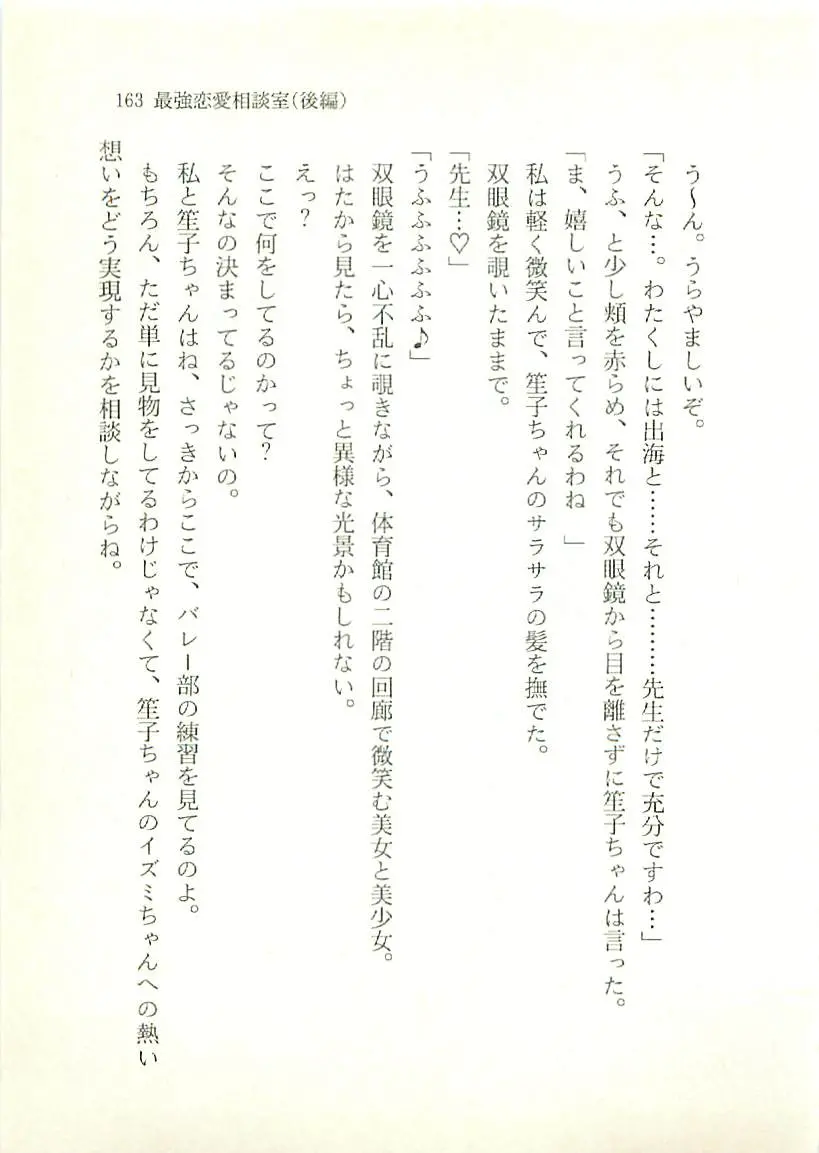 163 最強恋愛相談室(後編)
う〜ん。うらやましいぞ。
「そんな…。わたくしには出海と……それと………先生だけで充分ですわ…」
うふ、と少し頬を赤らめ、それでも双眼鏡から目を離さずに笙子ちゃんは言った。
「ま、嬉しいこと言ってくれるわね　」
私は軽く微笑んで、笙子ちゃんのサラサラの髪を撫でた。
双眼鏡を覗いたままで。
「先生…♡」
「うふふふふふふ♪」
双眼鏡を一心不乱に覗きながら、体育館の二階の回廊で微笑む美女と美少女。
はたから見たら、ちょっと異様な光景かもしれない。
えっ？
ここで何をしてるのかって？
そんなの決まってるじゃないの。
私と笙子ちゃんはね、さっきからここで、バレー部の練習を見てるのよ。
もちろん、ただ単に見物をしてるわけじゃなくて、笙子ちゃんのイズミちゃんへの熱い
想いをどう実現するかを相談しながらね。